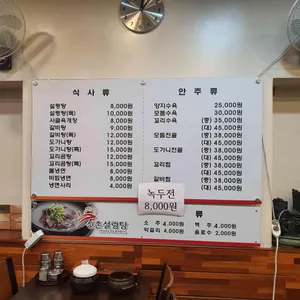 식 사 류
설렁탕 8,000원
설렁탕(특) 10,000원
사골육개장 8,000원
갈비탕 9,000원
갈비탕(특) 12,000원
도가니탕 12,000원
도가니탕(특) 15,000원
꼬리곰탕 12,000원
꼬리곰탕(특) 15,000원
물냉면 8,000원
비빔냉면 8,000원
냉면사리 4,000원
안 주 류
양지수육 25,000원
모듬수육 30,000원
꼬리수육 (중) 35,000원
(대) 45,000원
모듬전골 (중) 38,000원
(대) 45,000원
도가니전골 (중) 38,000원
(대) 45,000원
꼬리찜 (중) 38,000원
(대) 45,000원
갈비찜 (중) 38,000원
(대) 45,000원
녹두전
8,000원
류
촌설렁탕
소 주 4,000원
맥 주 4,000원
막걸리 4,000원
음료수 2,000원